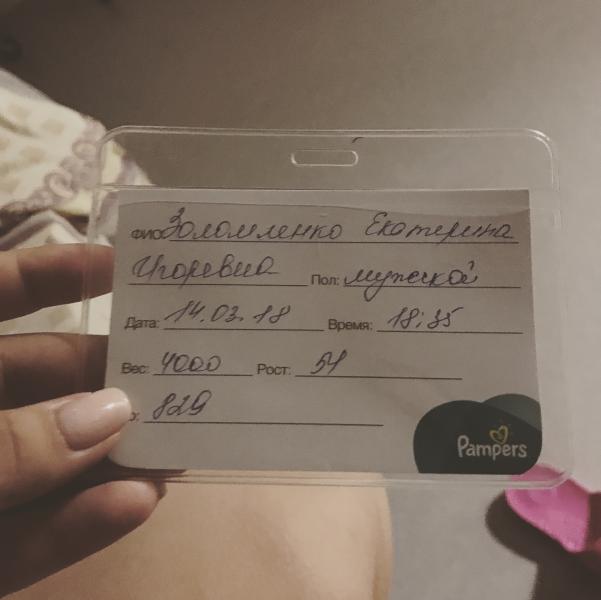 ФИО Золомленко Екатерина
Игоревна Пол: мужской
Дата: 14.03.18 Время: 18:35
Вес: 4000 Рост: 54
829
Pampers